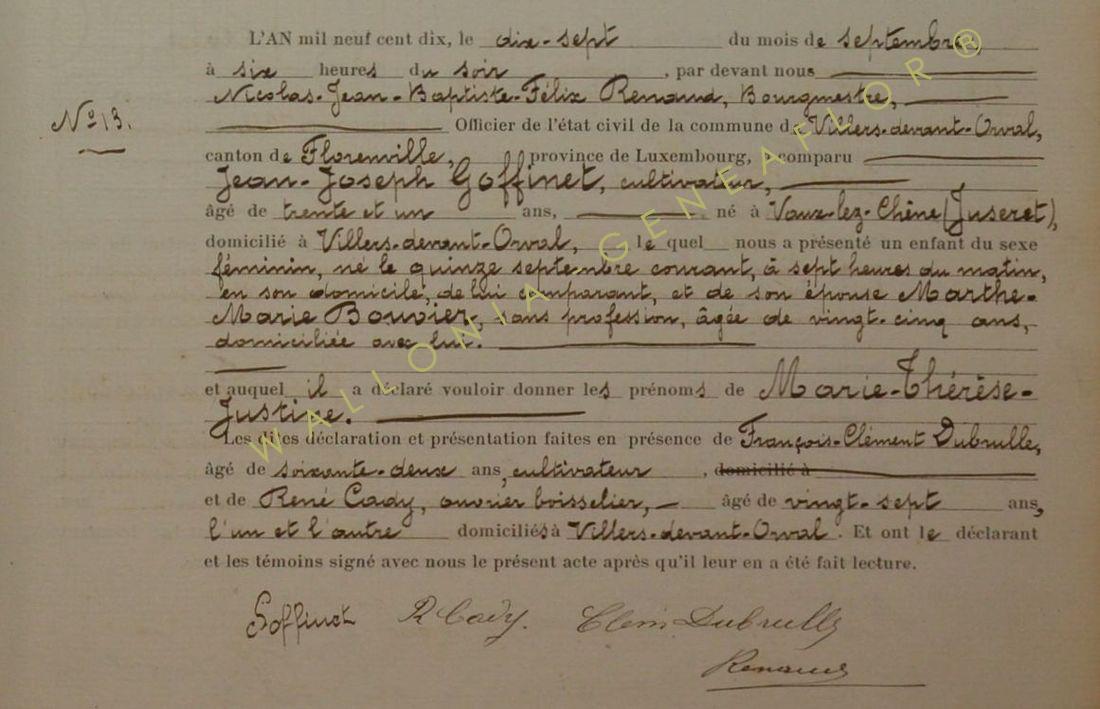 L'AN mil neuf cent dix, le dix-sept du mois de septembre
à six heures du soir, par devant nous
Nicolas-Jean-Baptiste-Félix Renaud, Bourgmestre,
Nº 13.
Officier de l'état civil de la commune de Villers-devant-Orval,
canton de Florenville, province de Luxembourg, a comparu
Jean-Joseph Goffinet, cultivateur,
âgé de trente et un ans, né à Vaux-lez-Chêne (Juseret),
domicilié à Villers-devant-Orval, le quel nous a présenté un enfant du sexe
féminin, né le quinze septembre courant, à sept heures du matin,
en son domicile, de lui comparant, et de son épouse Marthe-
Marie Bouvier, sans profession, âgée de vingt-cinq ans,
domiciliée avec lui.
et auquel il a déclaré vouloir donner les prénoms de Marie-Thérèse-
Justine.
Les dites déclaration et présentation faites en présence de François-Clément Dubrulle,
âgé de soixante-deux ans, cultivateur, domicilié à
et de René Cady, ouvrier boisselier, âgé de vingt-sept ans,
l'un et l'autre domiciliés à Villers-devant-Orval. Et ont le déclarant
et les témoins signé avec nous le présent acte après qu'il leur en a été fait lecture.
Goffinet R Cady. Clém Dubrulle
Renaud
WALLONIA GENEAFLOR®